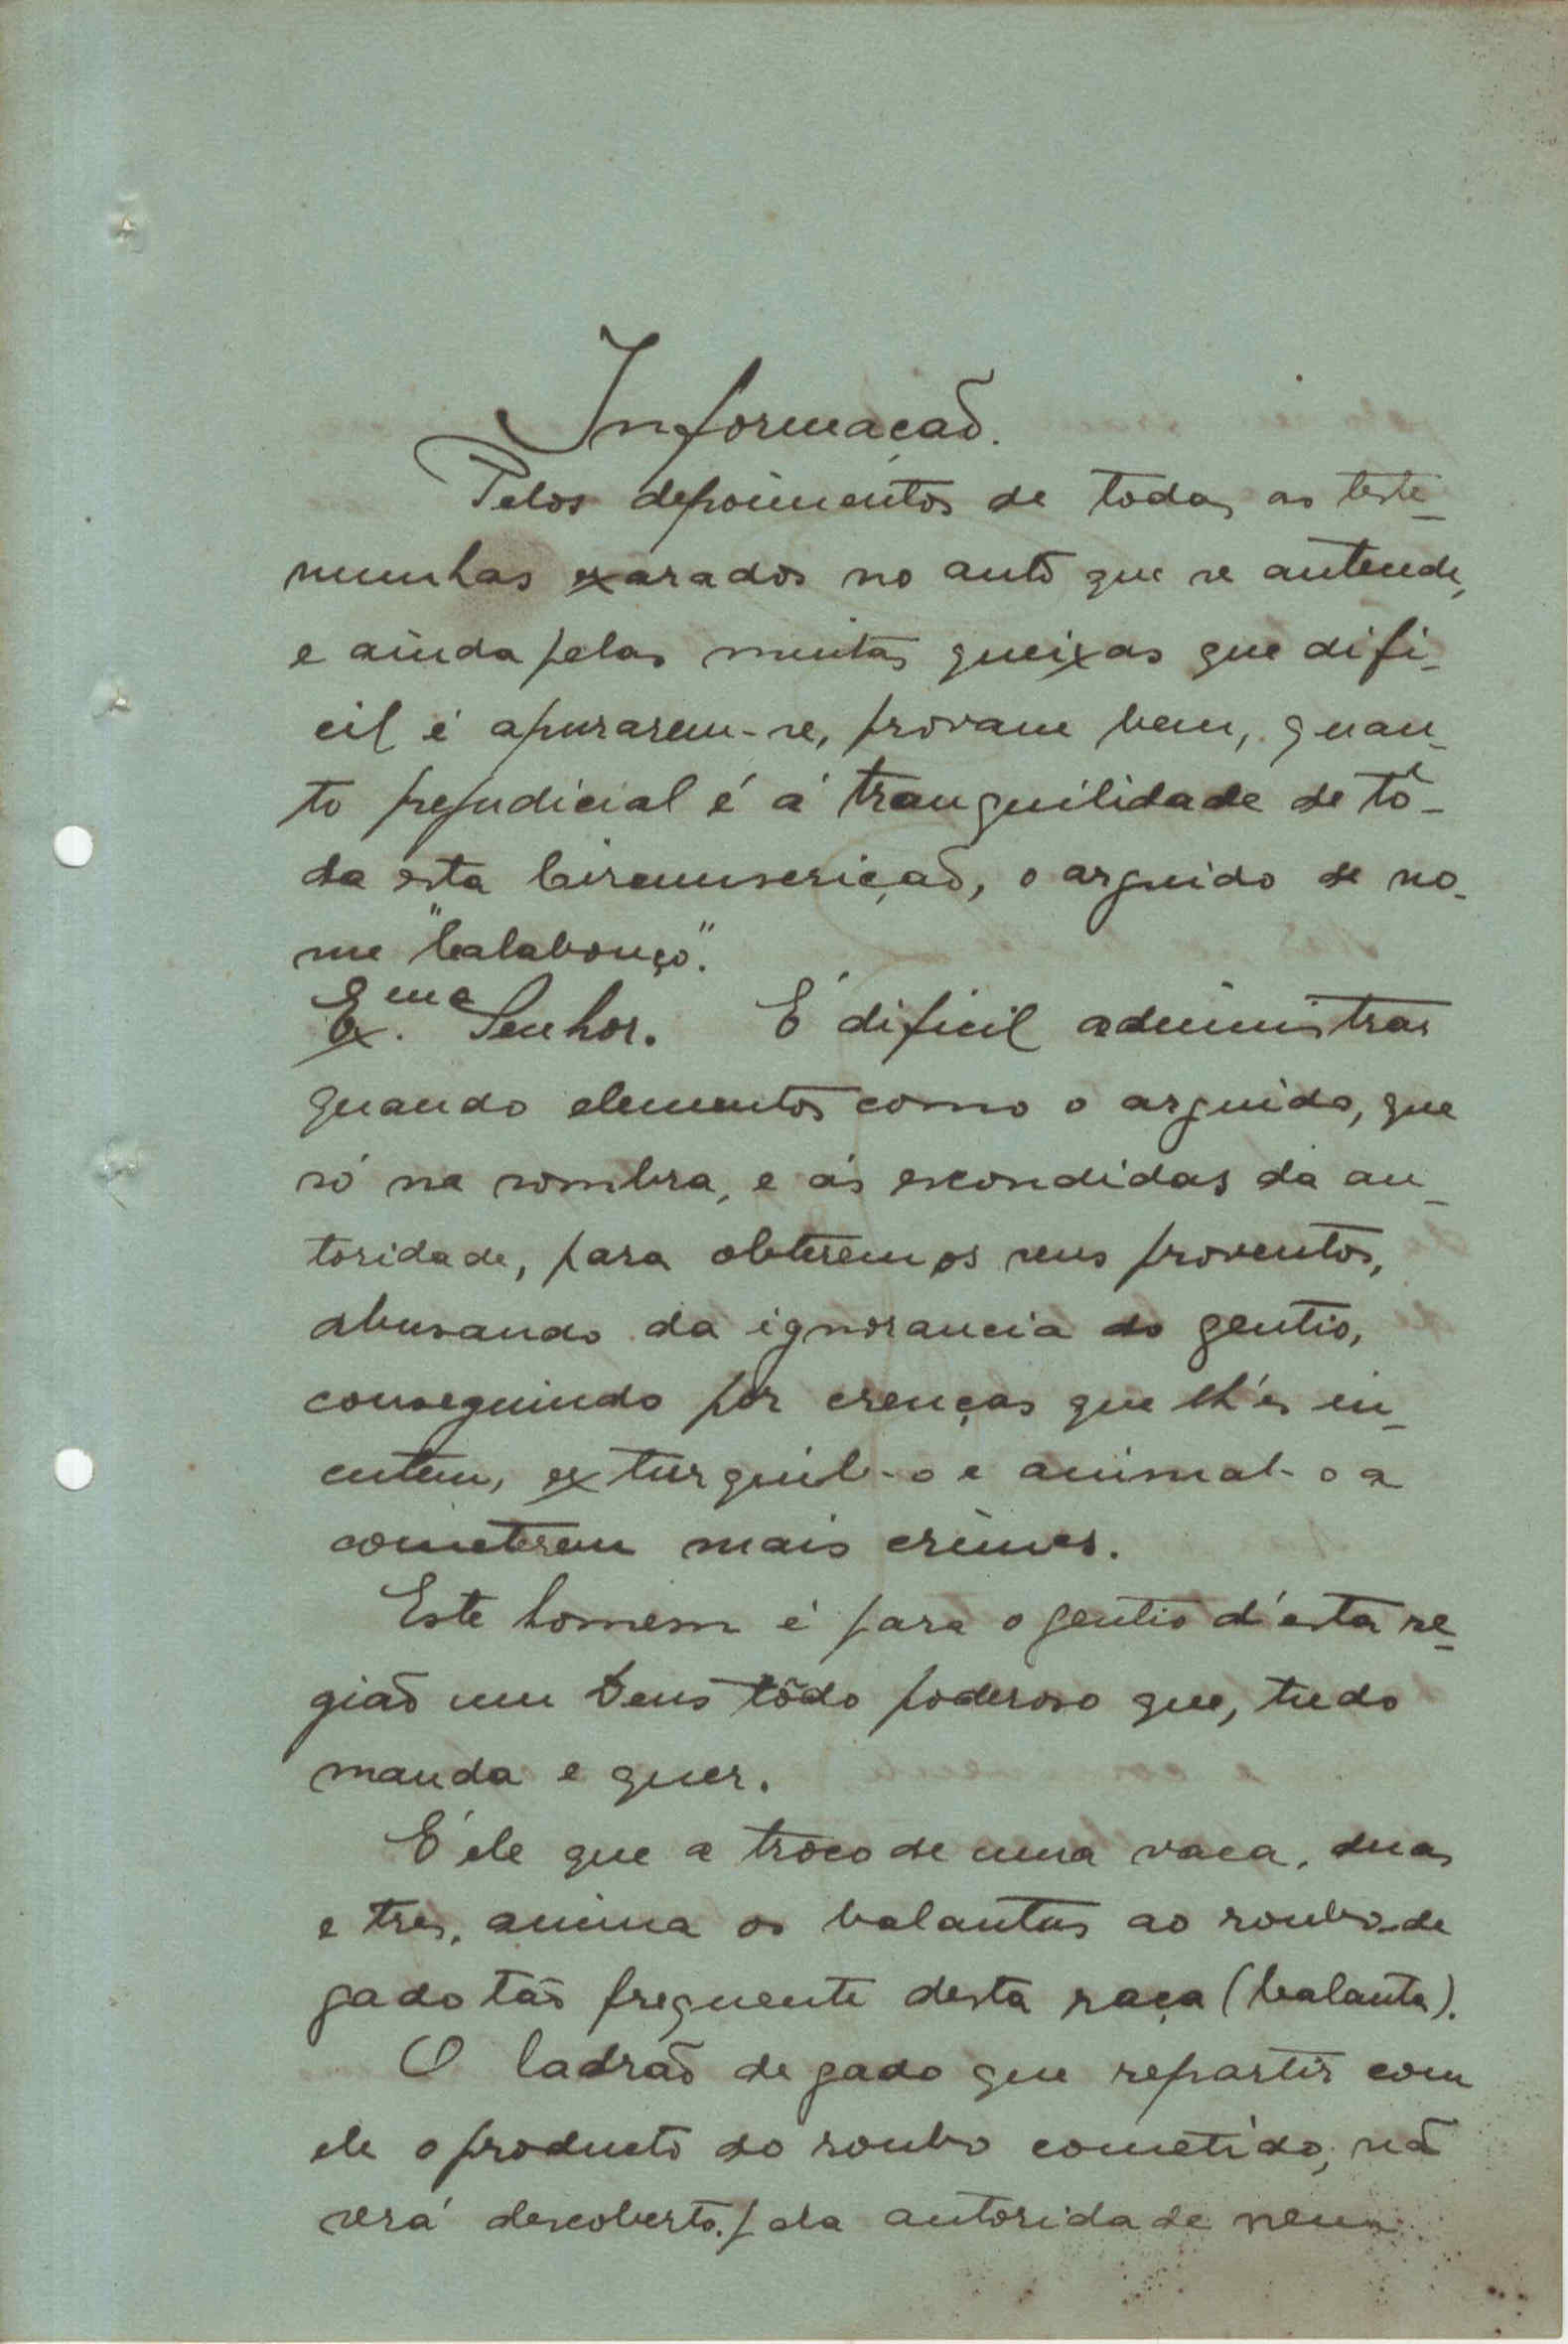 Informação.
Pelos depoimentos de todas as teste-
munhas exarados no auto que se antende,
e ainda pelas muitas queixas que difi-
cil é apurarem-se, provam bem, quan-
to prejudicial é á tranquilidade de tô-
da esta Circumscrição, o arguido de no-
me "Calabouço".
Ex.me Senhor. É dificil administrar
quando elementos como o arguido, que
só na sombra, e ás escondidas da au-
toridade, para obterem os seus proventos,
abusando da ignorancia do gentio,
conseguindo por crenças que lh'es in-
cutem, exturquil-o e animal-o a
cometerem mais crimes.
Este homem é para o gentio d'esta re-
gião um Deus tôdo poderoso que, tudo
manda e quer.
É ele que a troco de uma vaca, duas
e tres, anima os balantas ao roubo de
gado tão frequente desta raça (balanta).
O ladrão de gado que repartir com
ele o producto do roubo cometido, nã
será descoberto pela autoridade nem